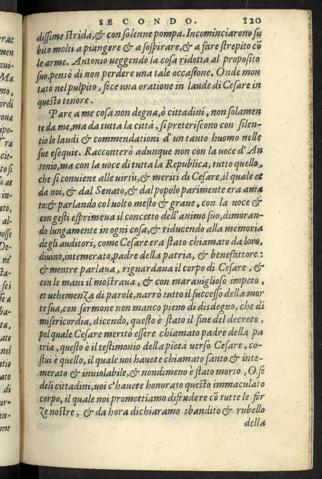 SECONDO. 120
dissime strida, & con solenne pompa. Incominciarono su
bito molti a piangere & a sospirare, & a fare strepito cō
le arme. Antonio veggendo la cosa ridotta al proposito
suo, pensò di non perdere una tale occasione. Onde mon
tato nel pulpito, fece una oratione in laude di Cesare in
questo tenore.
Pare a me cosa non degna, ò cittadini, non solamen
te da me, ma da tutta la città, si preteriscono con silen-
tio le laudi & commendationi d'un tanto huomo nelle
sue esequie. Racconterò adunque non con la voce d'An
tonio, ma con la voce di tutta la Republica, tutto quello,
che si conviene alle virtù, & meriti di Cesare, il quale et
da noi, & dal Senato, & dal popolo parimente era ama
to: & parlando col volto mesto & grave, con la voce &
con gesti esprimeva il concetto dell'animo suo, dimoran-
do lungamente in ogni cosa, & riducendo alla memoria
degli auditori, come Cesare era stato chiamato da loro,
divino, intemerato, padre della patria, & benefattore:
& mentre parlava, riguardava il corpo di Cesare, &
con le mani il mostrava, & con maraviglioso impeto,
et vehemenza di parole, narrò tutto il successo della mor
te sua, con sermone non manco pieno di disdegno, che di
misericordia, dicendo, questo è stato il fine del decreto,
pel quale Cesare meritò essere chiamato padre della pa
tria, questo è il testimonio della pietà verso Cesare, co-
stui è quello, il quale voi havete chiamato santo & inte-
merato & inviolabile, & nondimeno è stato morto, O se
deli cittadini, voi c'havete honorato questo immaculato
corpo, il quale noi promettiamo difendere cō tutte le for
ze nostre, & da hora dichiaramo sbandito & rubello
della